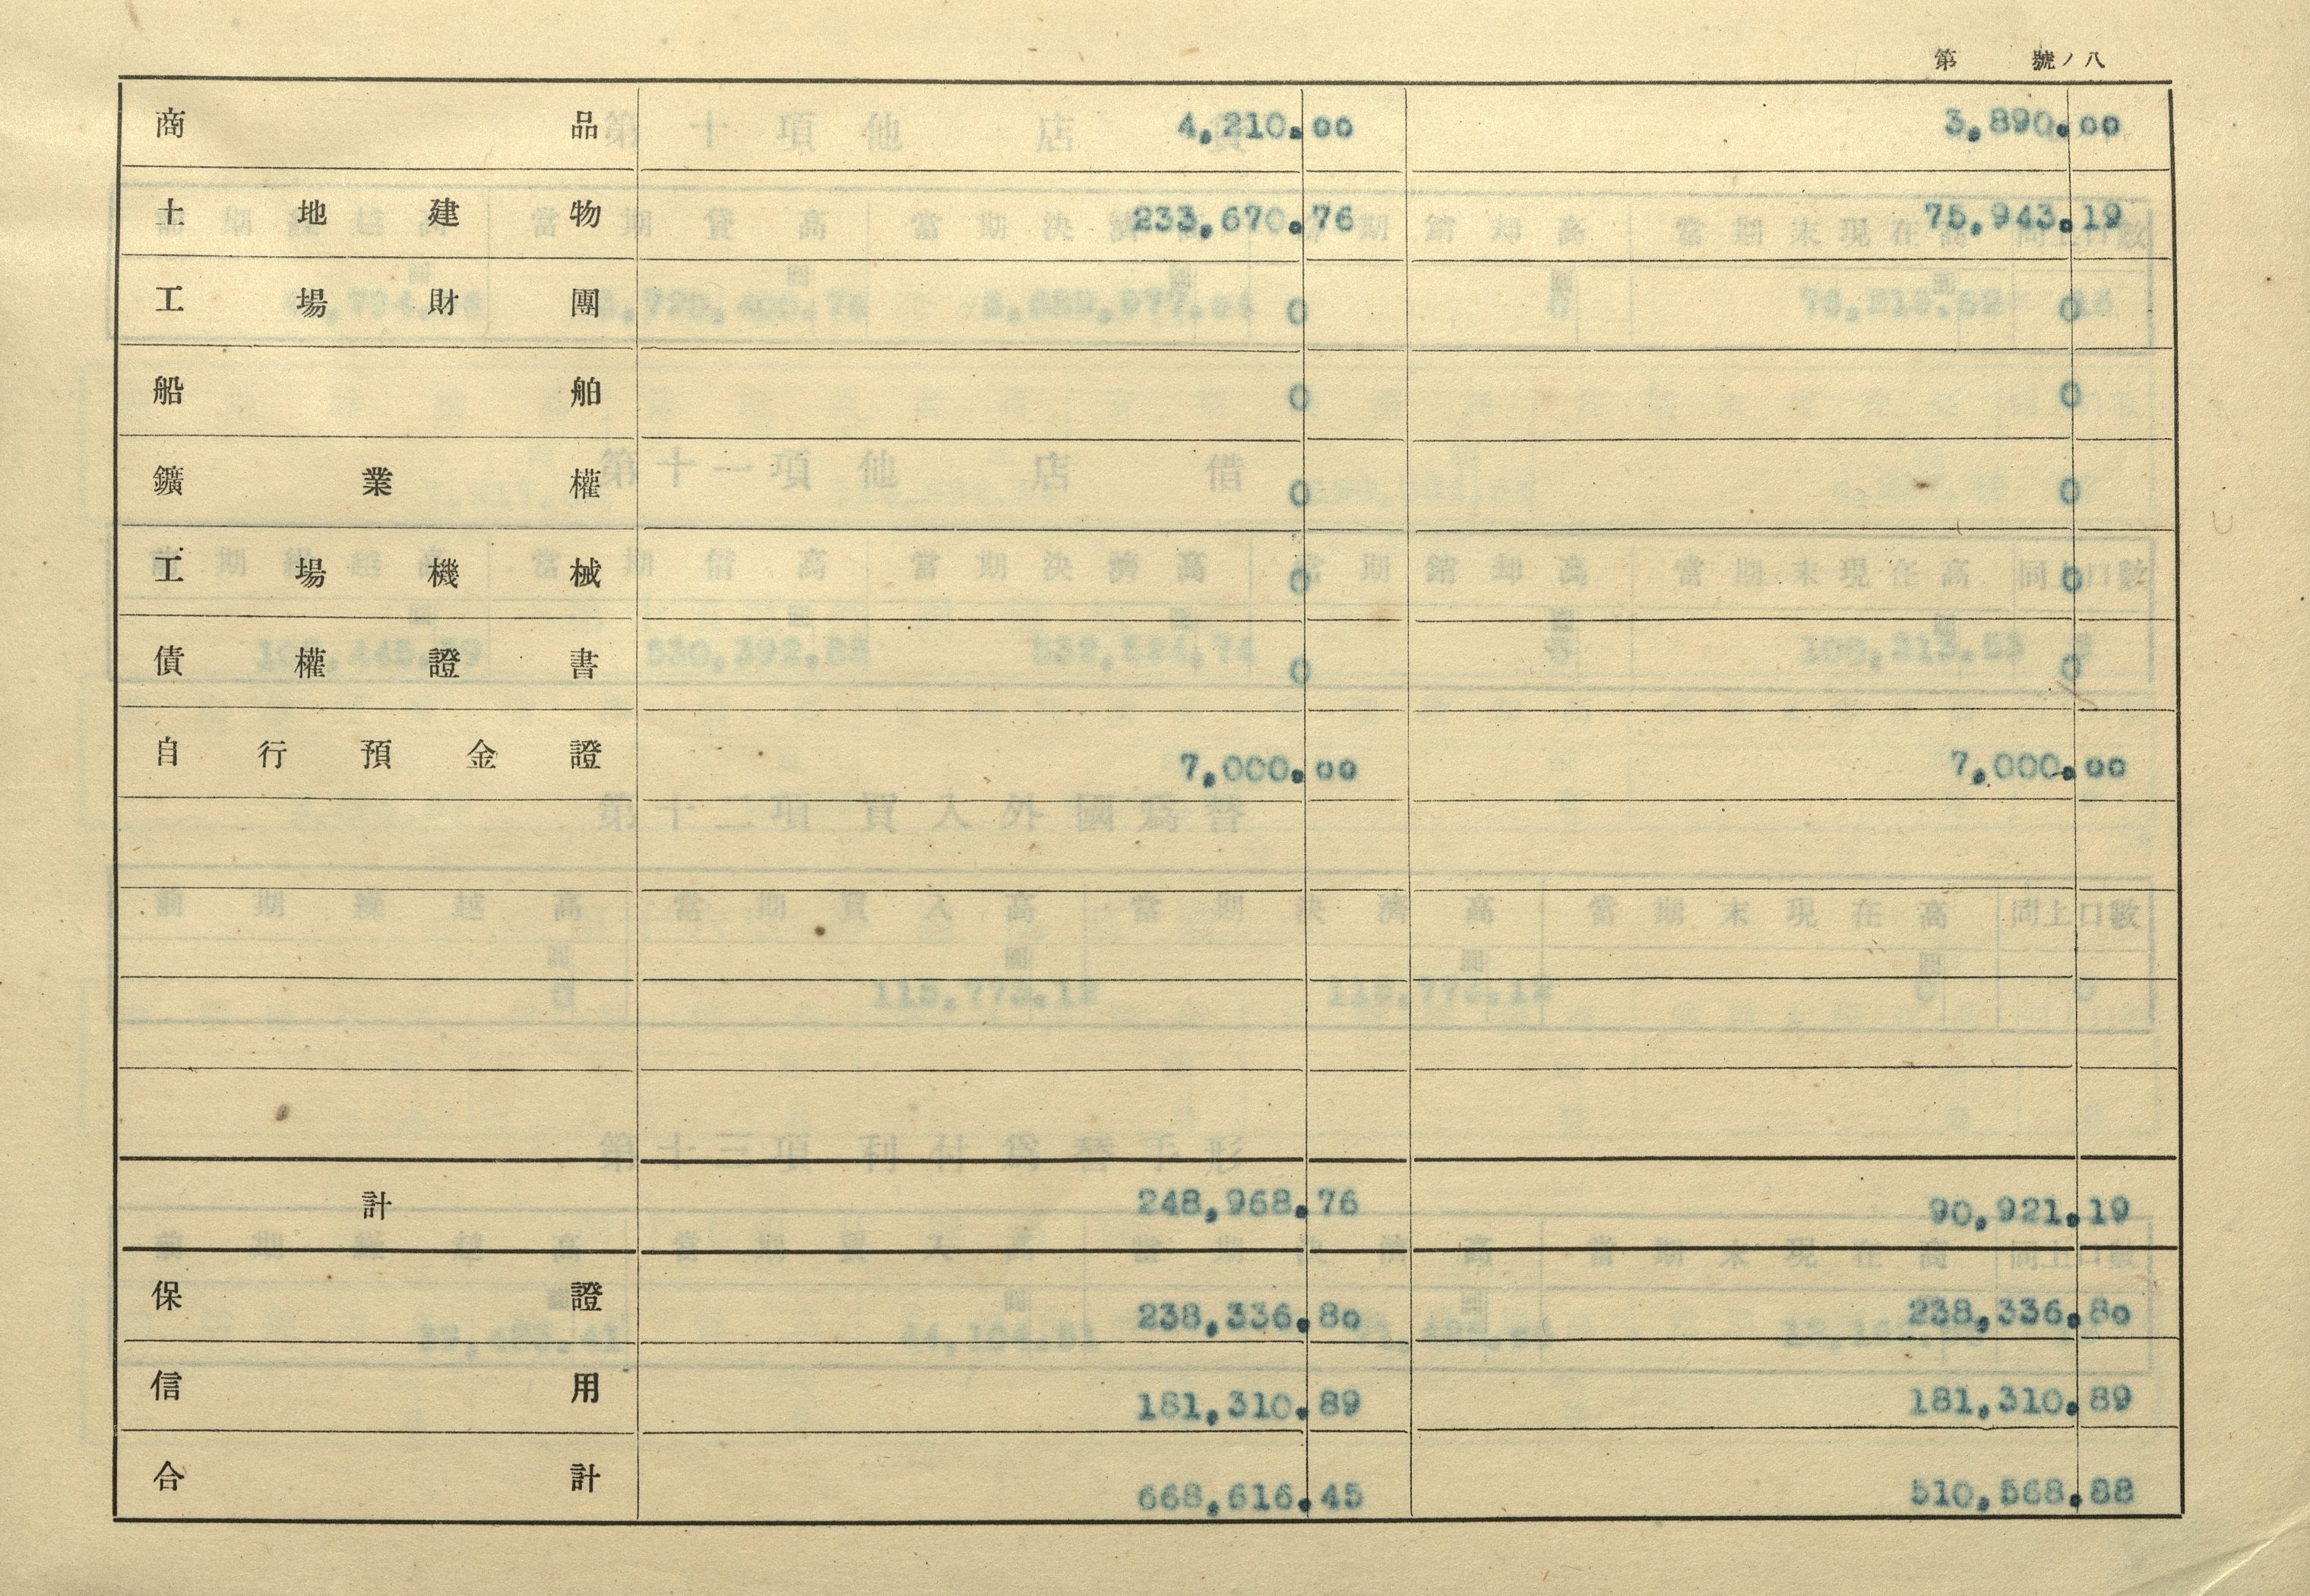 第 號ノ八
商品 4,210.00 3,890.00
土地建物 233,670.76 75,943.19
工場財團 0 0
船舶 0 0
鑛業權 0 0
工場機械 0 0
債權證書 0 0
自行預金證 7,000.00 7,000.00
計 248,968.76 90,921.19
保證 238,336.80 238,336.80
信用 181,310.89 181,310.89
合計 668,616.45 510,568.88